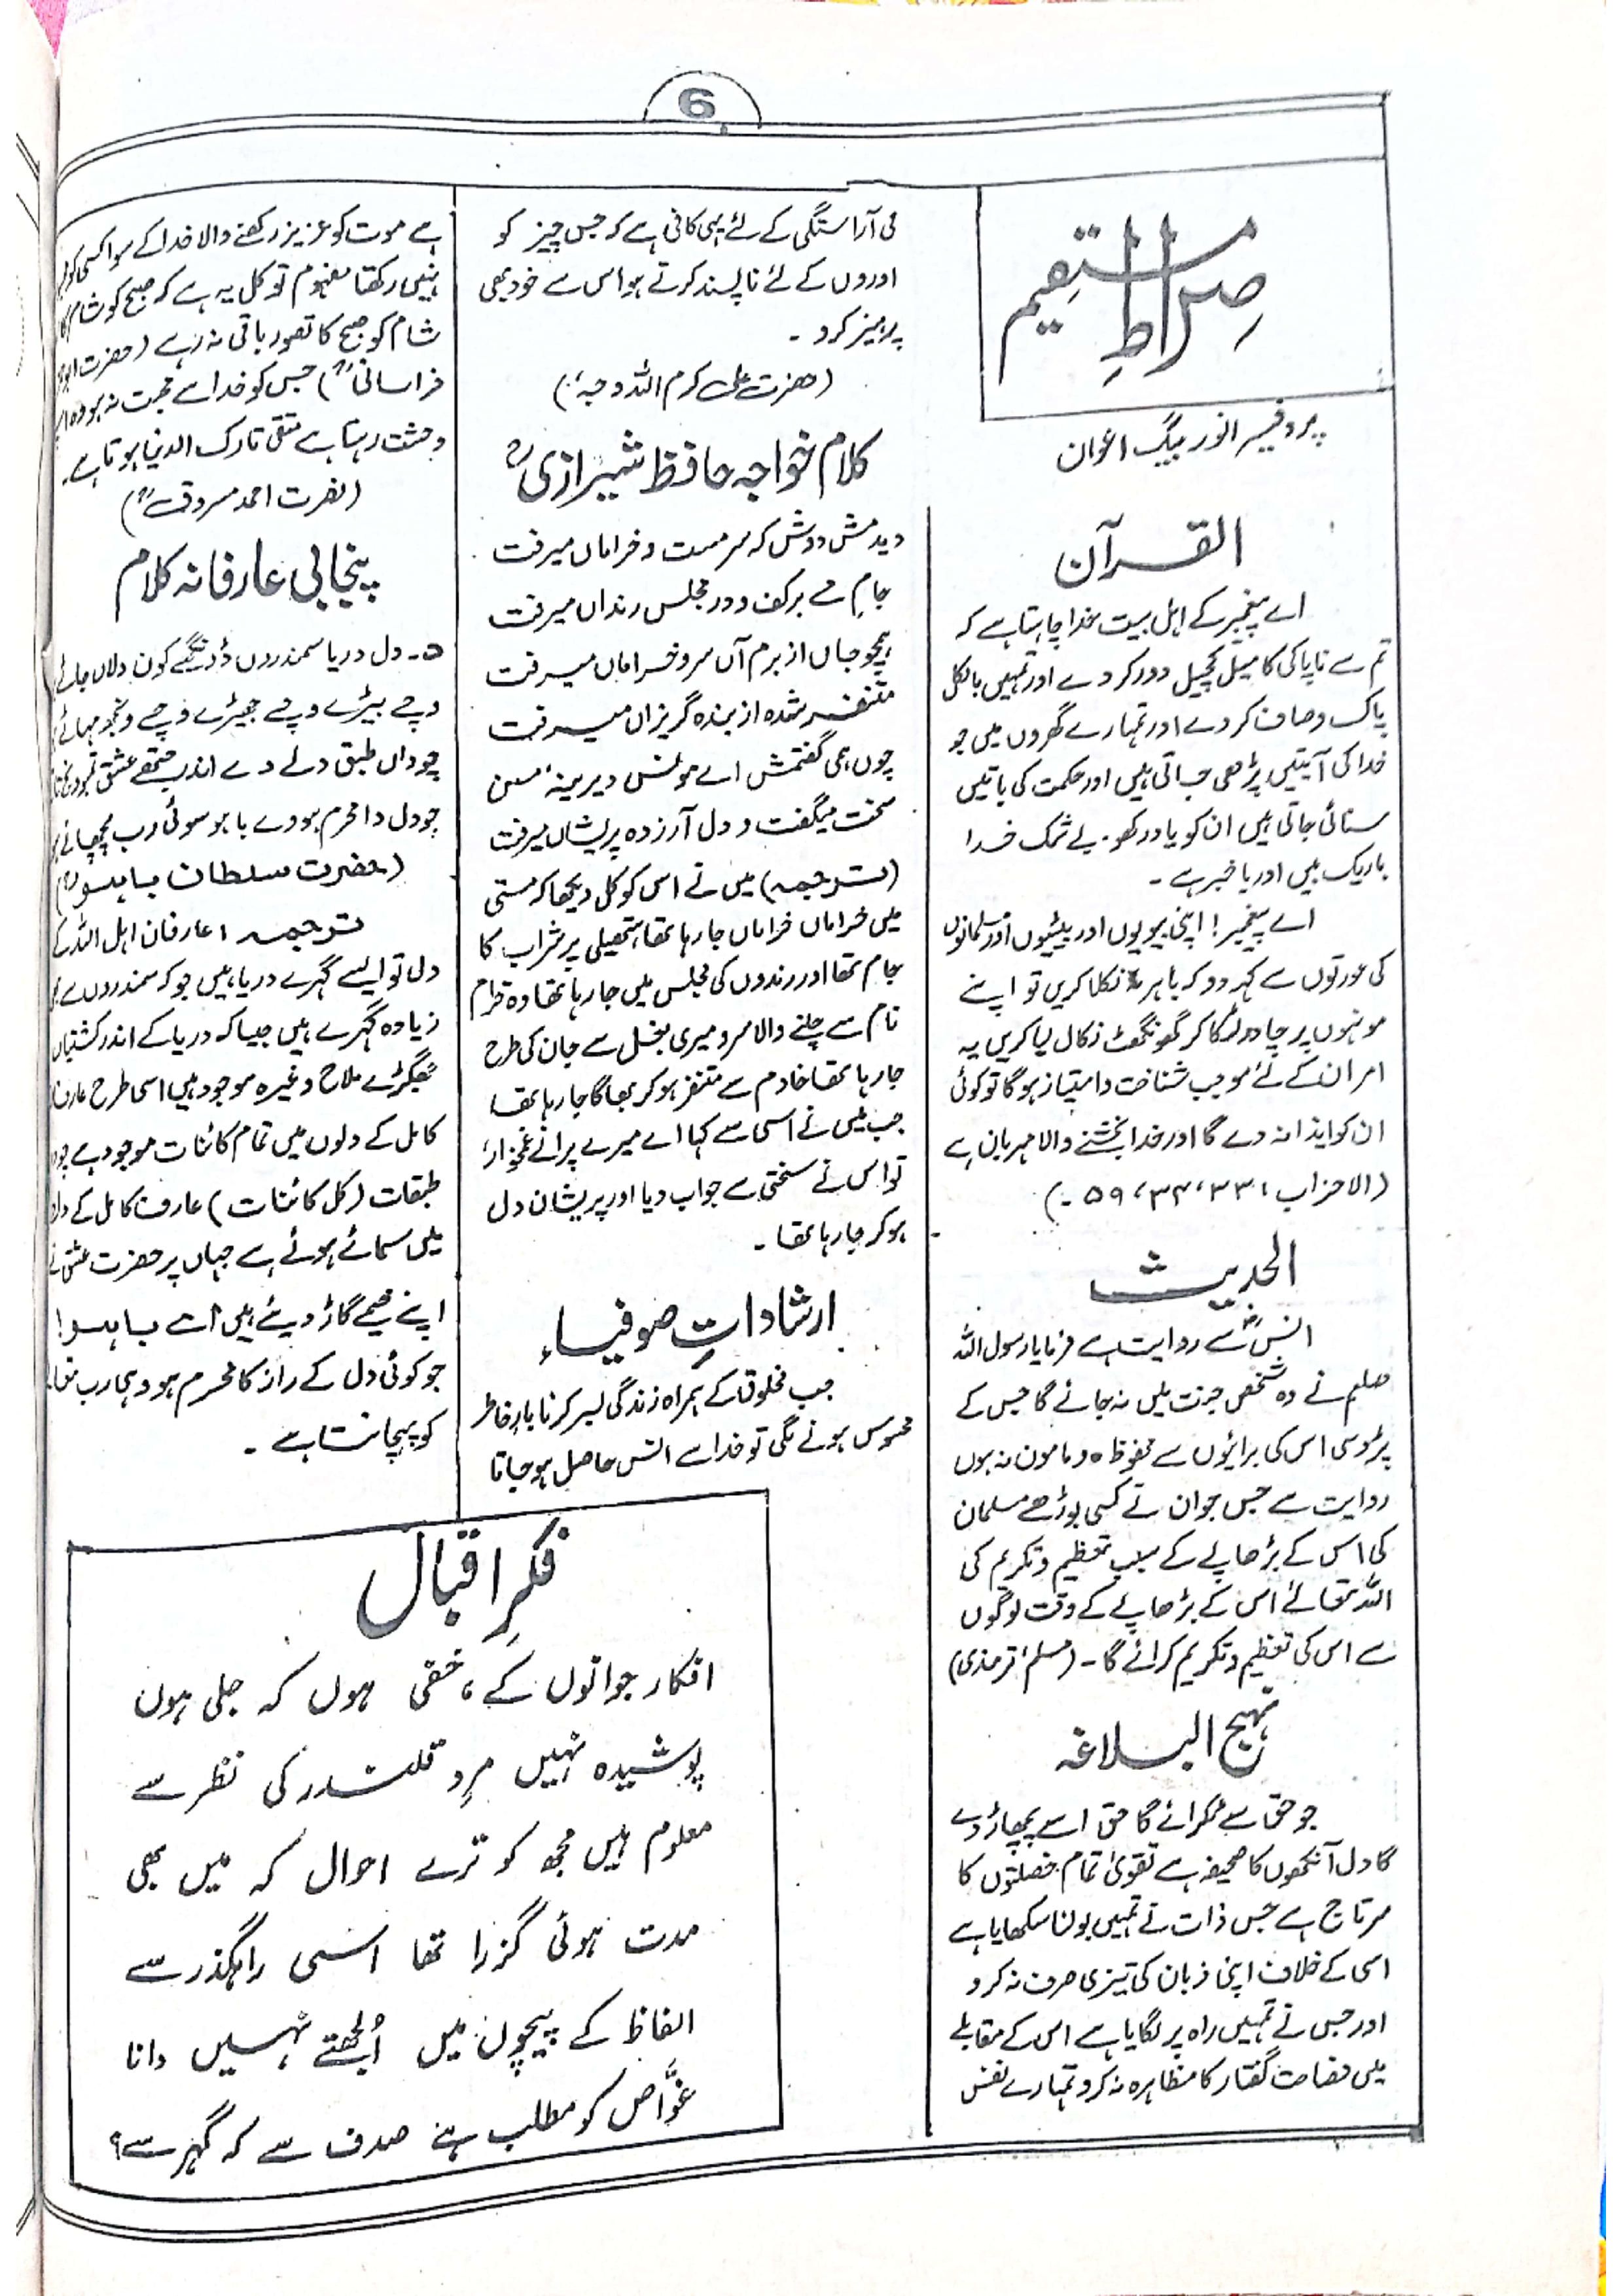 6
صراطِ مستقیم
پروفیسر انور بیگ اعوان
القرآن
اے پیغمبر کے اہل بیت خدا چاہتا ہے کہ
تم سے ناپاکی کا میل کچیل دور کر دے اور تمہیں بالکل
پاک و صاف کر دے اور تمہارے گھروں میں جو
خدا کی آیتیں پڑھی جاتی ہیں اور حکمت کی باتیں
سنائی جاتی ہیں ان کو یاد رکھو۔ بے شک خدا
باریک بیں اور باخبر ہے۔
اے پیغمبر! اپنی بیویوں اور بیٹیوں اور مسلمانوں
کی عورتوں سے کہہ دو کہ باہر نکلا کریں تو اپنے
مونہوں پر چادر لٹکا کر گھونگھٹ نکال لیا کریں یہ
امر ان کے لئے موجب شناخت و امتیاز ہو گا تو کوئی
ان کو ایذا نہ دے گا اور خدا بخشنے والا مہربان ہے
(الاحزاب ۳۳، ۳۴، ۵۹۔)
الحدیث
انسؓ سے روایت ہے فرمایا رسول اللہ
صلعم نے وہ شخص جنت میں نہ جائے گا جس کے
پڑوسی اس کی برائیوں سے محفوظ و مامون نہ ہوں
روایت ہے جس جوان نے کسی بوڑھے مسلمان
کی اس کے بڑھاپے کے سبب تعظیم و تکریم کی
اللہ تعالےٰ اس کے بڑھاپے کے وقت لوگوں
سے اس کی تعظیم و تکریم کرائے گا۔ (مسلم، ترمذی)
نہج البلاغہ
جو حق سے ٹکرائے گا حق اسے پچھاڑ دے
گا دل آنکھوں کا صحیفہ ہے تقویٰ تمام خصلتوں کا
سرتاج ہے جس ذات نے تمہیں بولنا سکھایا ہے
اسی کے خلاف اپنی زبان کی تیزی صرف نہ کرو
اور جس نے تمہیں راہ پر لگایا ہے اس کے مقابلے
میں فصاحت گفتار کا مظاہرہ نہ کرو تمہارے نفس
کی آراستگی کے لئے یہی کافی ہے کہ جس چیز کو
اوروں کے لئے ناپسند کرتے ہو اس سے خود بھی
پرہیز کرو۔
(حضرت علی کرم اللہ وجہہ)
کلام خواجہ حافظ شیرازیؒ
دیدمش دوش کہ سرمست و خراماں میرفت
جامِ مے برکف و در مجلس رنداں میرفت
ہمچو جاں از برم آں سرو خراماں میرفت
متنفر شدہ از بندہ گریزاں میرفت
چوں ہمی گفتمش اے مونس دیرینۂ من
سخت میگفت و دل آرزدہ پریشاں میرفت
(ترجمہ) میں نے اس کو کل دیکھا کہ مستی
میں خراماں خراماں جا رہا تھا، ہتھیلی پر شراب کا
جام تھا اور رندوں کی مجلس میں جا رہا تھا وہ خرام
نام سے چلنے والا سرو میری بغل سے جان کی طرح
جا رہا تھا خادم سے متنفر ہو کر بھاگا جا رہا تھا
جب میں نے اس سے کہا اے میرے پرانے غمخوار!
تو اس نے سختی سے جواب دیا اور پریشان دل
ہو کر جا رہا تھا۔
ارشاداتِ صوفیاء
جب مخلوق کے ہمراہ زندگی بسر کرنا بارِ خاطر
محسوس ہونے لگی تو خدا سے انس حاصل ہو جاتا
ہے موت کو عزیز رکھنے والا خدا کے سوا کسی کو
نہیں رکھتا مفہوم توکل یہ ہے کہ صبح کو شام کا
شام کو صبح کا تصور باقی نہ رہے (حضرت
خراسانیؒ) جس کو خدا سے محبت نہ ہو وہ
وحشت رہتا ہے متقی تارک الدنیا ہوتا ہے۔
(نضرت احمد مسروقؒ)
پنجابی عارفانہ کلام
۵۔ دل دریا سمندروں ڈونگے کون دلاں جانے
وچے بیڑے وچے جھیڑے وچے ونجھ مہانے
چوداں طبق دلے دے اندر جتھے عشق تمبو ونج
جو دل دا محرم ہووے باہو سوئی رب پچھانے
(حضرت سلطان باہوؒ)
ترجمہ: عارفان اہل اللہ کے
دل تو ایسے گہرے دریا ہیں جو کہ سمندروں سے
زیادہ گہرے ہیں جیسا کہ دریا کے اندر کشتیاں
جھگڑے ملاح وغیرہ موجود ہیں اسی طرح
کامل کے دلوں میں تمام کائنات موجود ہے
طبقات (کل کائنات) عارف کامل کے
میں سمائے ہوئے ہے جہاں پر حضرت عشق نے
اپنے خیمے گاڑ دیئے ہیں اے باہو!
جو کوئی دل کے راز کا محرم ہو وہی رب
کو پہچانتا ہے۔
فکرِ اقبال
افکار جوانوں کے، خفی ہوں کہ جلی ہوں
پوشیدہ نہیں مردِ قلندر کی نظر سے
معلوم ہیں مجھ کو ترے احوال کہ میں بھی
مدت ہوئی گزرا تھا اسی راہگذر سے
الفاظ کے پیچوں میں اُلجھتے نہیں دانا
غوّاص کو مطلب ہے صدف سے کہ گہر سے؟